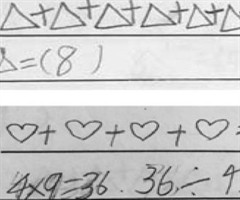 △+△+△+△+△+△
△=(8)
♡+♡+♡+♡=
4×9=36 36÷4